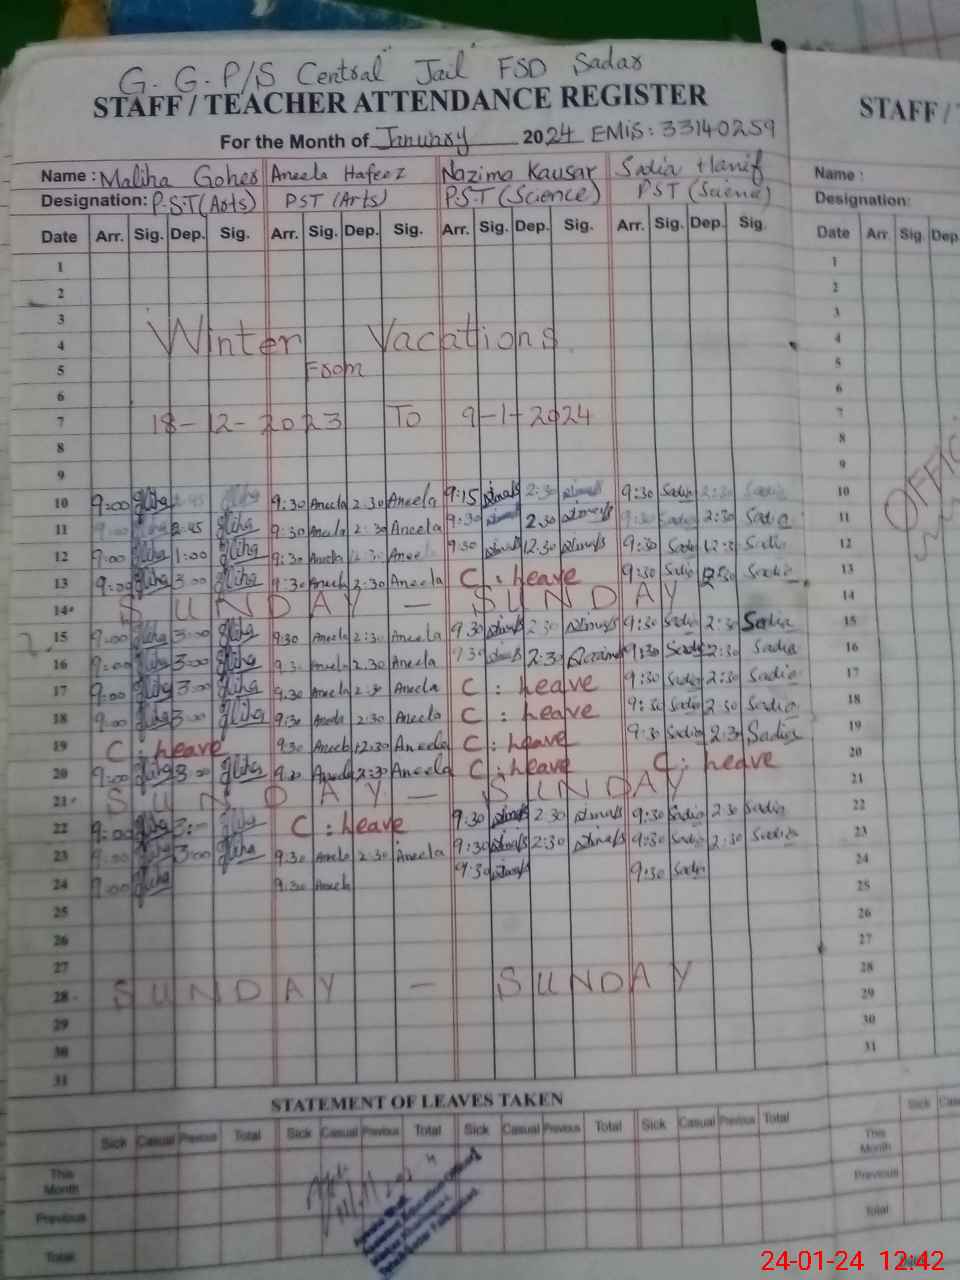 G.G.P/S Central Jail FSD Sadar
STAFF / TEACHER ATTENDANCE REGISTER
STAFF /
For the Month of January 2024 EMIS: 33140259
Name : Maliha Goher Aneela Hafeez Nazima Kausar Sadia Hanif Name :
Designation: P.S.T(Arts) PST (Arts) P.S.T (Science) PST (Science) Designation:
Date Arr. Sig. Dep. Sig. Arr. Sig. Dep. Sig. Arr. Sig. Dep. Sig. Arr. Sig. Dep. Sig. Date Arr. Sig. Dep.
1 1
2 2
3 3
4 Winter Vacations 4
5 From 5
6 6
7 18-12-2023 To 9-1-2024 7
8 8
9 9
10 9:00 9:30 Aneela 2:30 Aneela 9:15 2:30 9:30 Sadia 2:30 Sadia 10
11 9:00 2:45 9:30 Aneela 2:30 Aneela 9:30 2:30 9:30 Sadia 2:30 Sadia 11
12 9:00 1:00 9:30 Aneela 12:30 Aneela 9:30 12:30 9:30 Sadia 12:30 Sadia 12
13 9:00 3:00 9:30 Aneela 2:30 Aneela C : Leave 9:30 Sadia 2:30 Sadia 13
14 SUNDAY — SUNDAY 14
15 9:00 3:00 9:30 Aneela 2:30 Aneela 9:30 2:30 9:30 Sadia 2:30 Sadia 15
16 9:00 3:00 9:30 Aneela 2:30 Aneela 9:30 2:30 9:30 Sadia 2:30 Sadia 16
17 9:00 3:00 9:30 Aneela 2:30 Aneela C : Leave 9:30 Sadia 2:30 Sadia 17
18 9:00 3:00 9:30 Aneela 2:30 Aneela C : Leave 9:30 Sadia 2:30 Sadia 18
19 C : Leave 9:30 Aneela 12:30 Aneela C : Leave 9:30 Sadia 2:30 Sadia 19
20 9:00 3:00 9:30 Aneela 2:30 Aneela C : Leave C : Leave 20
21 SUNDAY — SUNDAY 21
22 9:00 3:- C : Leave 9:30 2:30 9:30 Sadia 2:30 Sadia 22
23 9:00 3:00 9:30 Aneela 2:30 Aneela 9:30 2:30 9:30 Sadia 2:30 Sadia 23
24 9:00 9:30 Aneela 9:30 9:30 Sadia 24
25 25
26 26
27 27
28 SUNDAY — SUNDAY 28
29 29
30 30
31 31
STATEMENT OF LEAVES TAKEN
Sick Casual Previous Total Sick Casual Previous Total Sick Casual Previous Total Sick Casual Previous Total Sick
This Month This Month
Previous Previous
Total Total
24-01-24 12:42